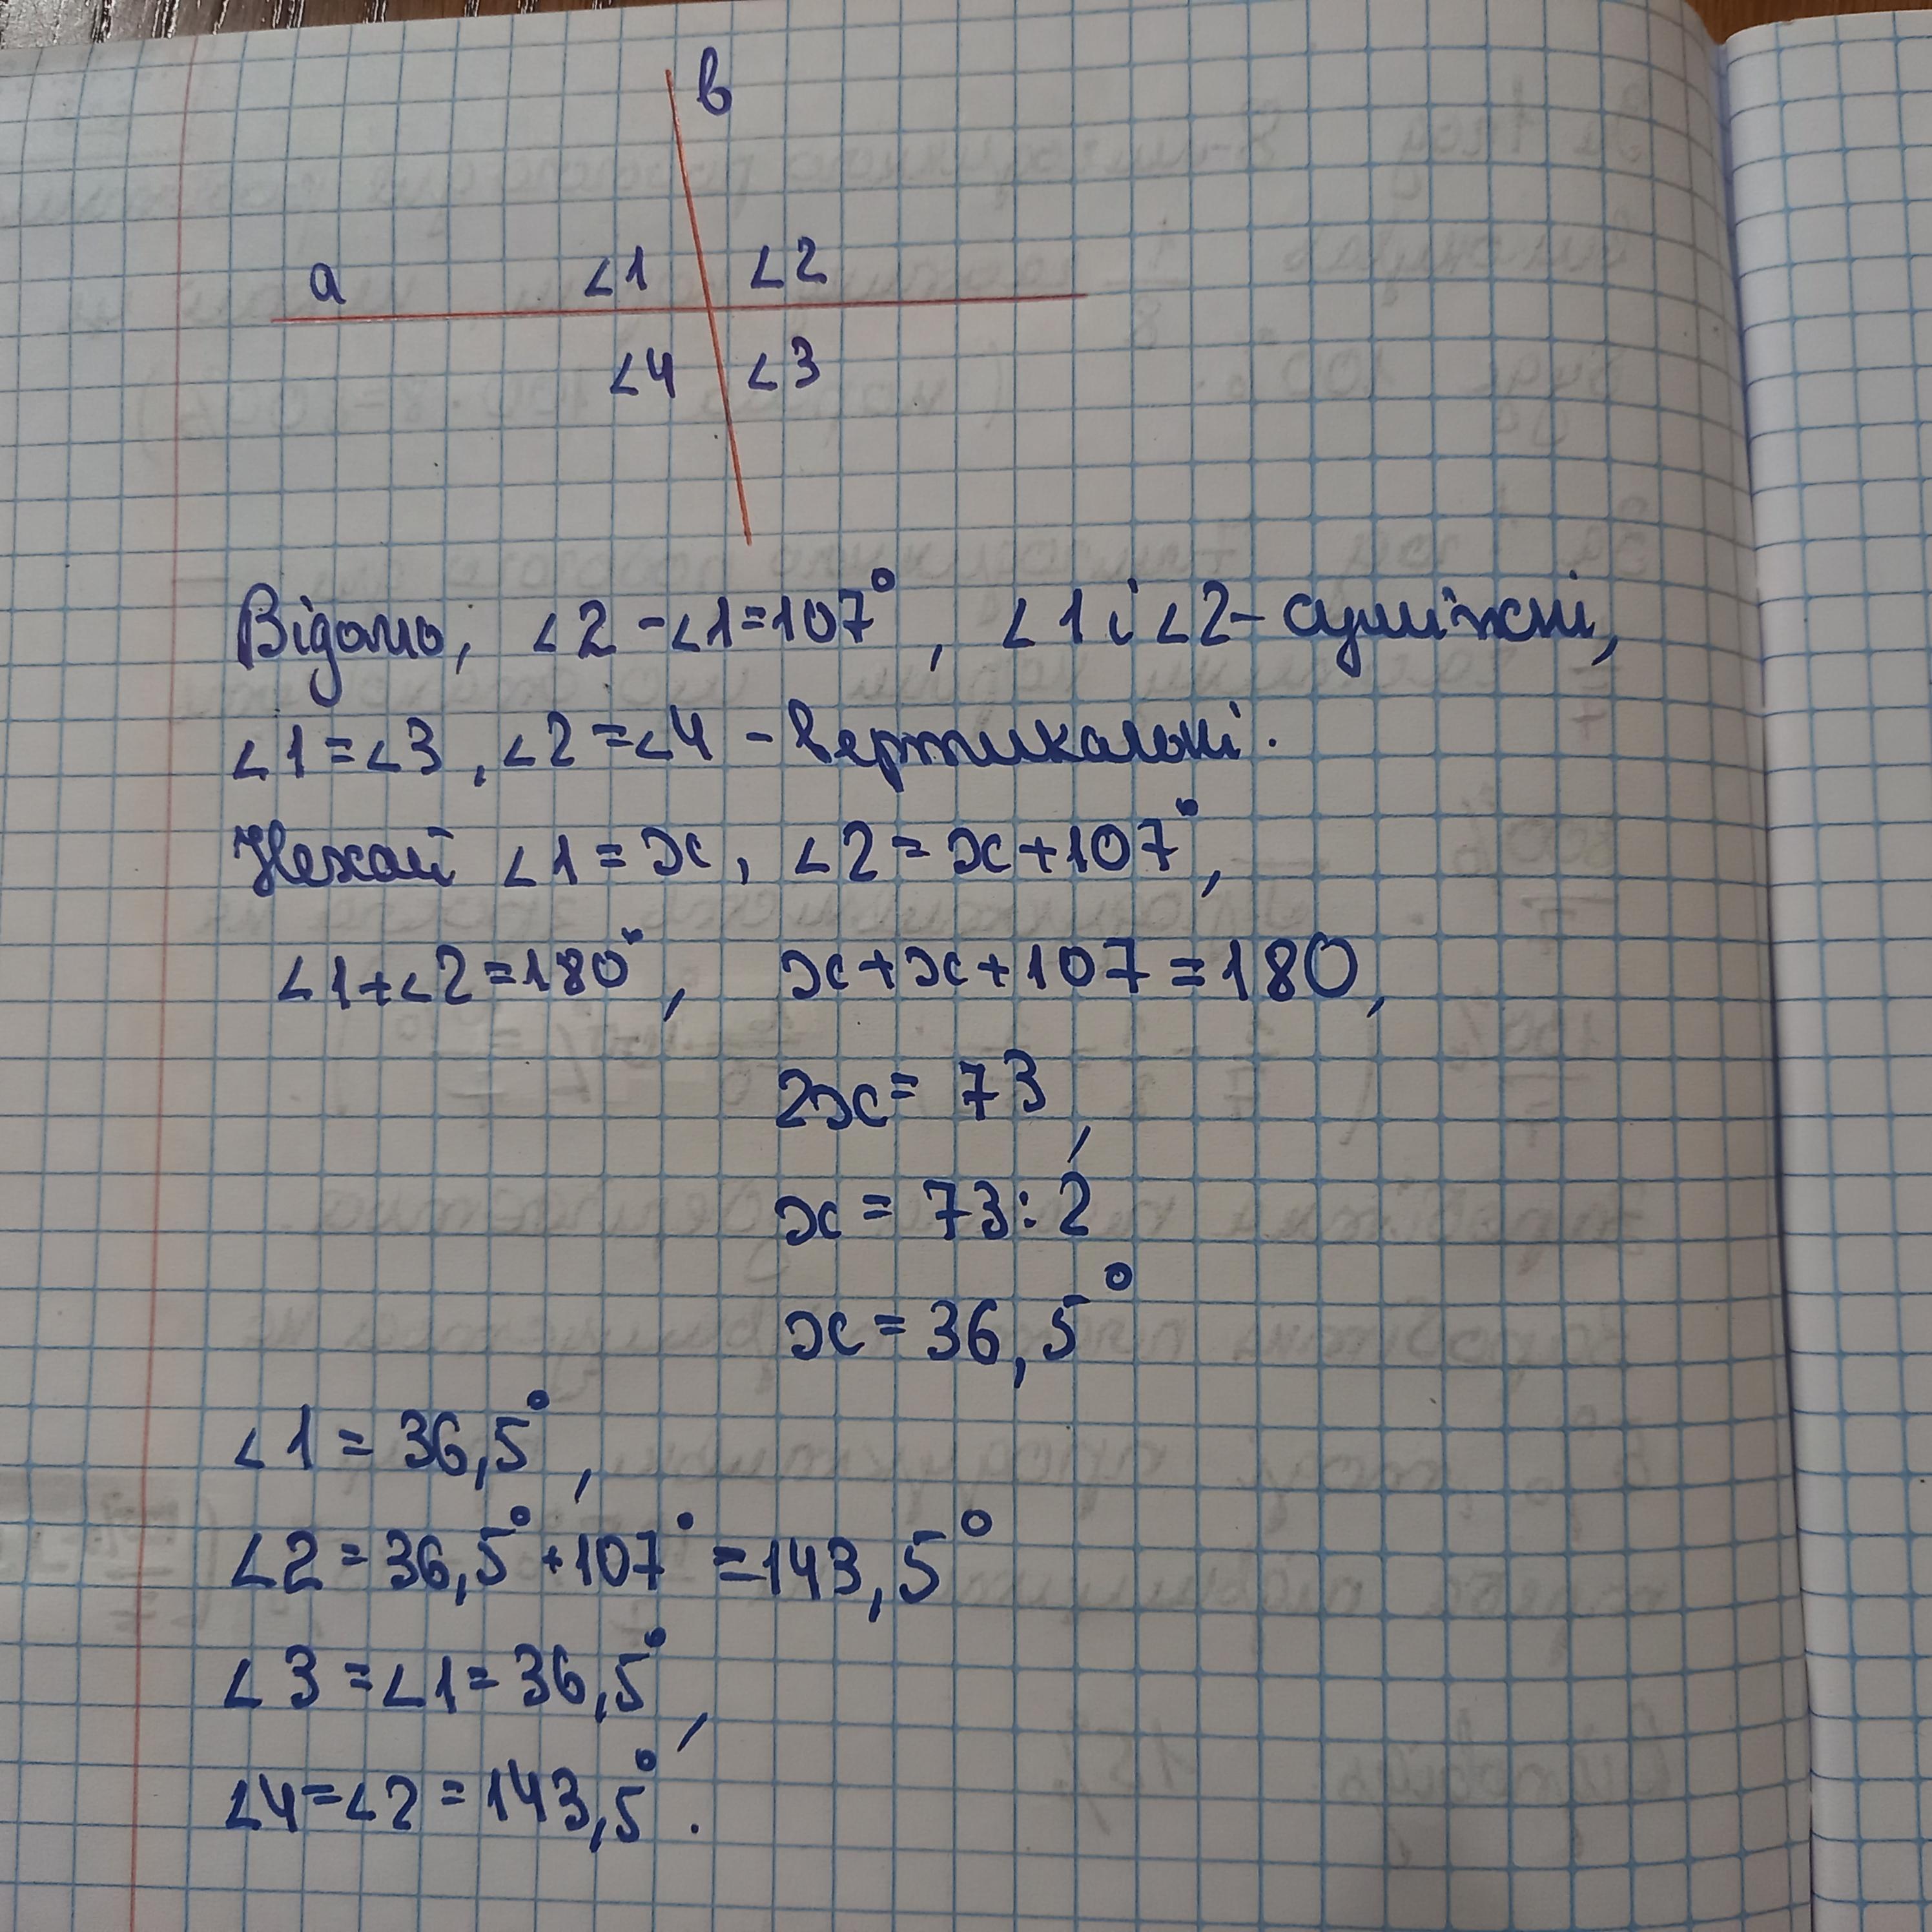 в
а ∠1 ∠2
∠4 ∠3
Відомо, ∠2 - ∠1 = 107°, ∠1 і ∠2 - суміжні,
∠1 = ∠3, ∠2 = ∠4 - вертикальні.
Нехай ∠1 = x, ∠2 = x + 107°,
∠1 + ∠2 = 180°, x + x + 107 = 180,
2x = 73,
x = 73 : 2
x = 36,5°
∠1 = 36,5°,
∠2 = 36,5° + 107° = 143,5°
∠3 = ∠1 = 36,5°,
∠4 = ∠2 = 143,5°.